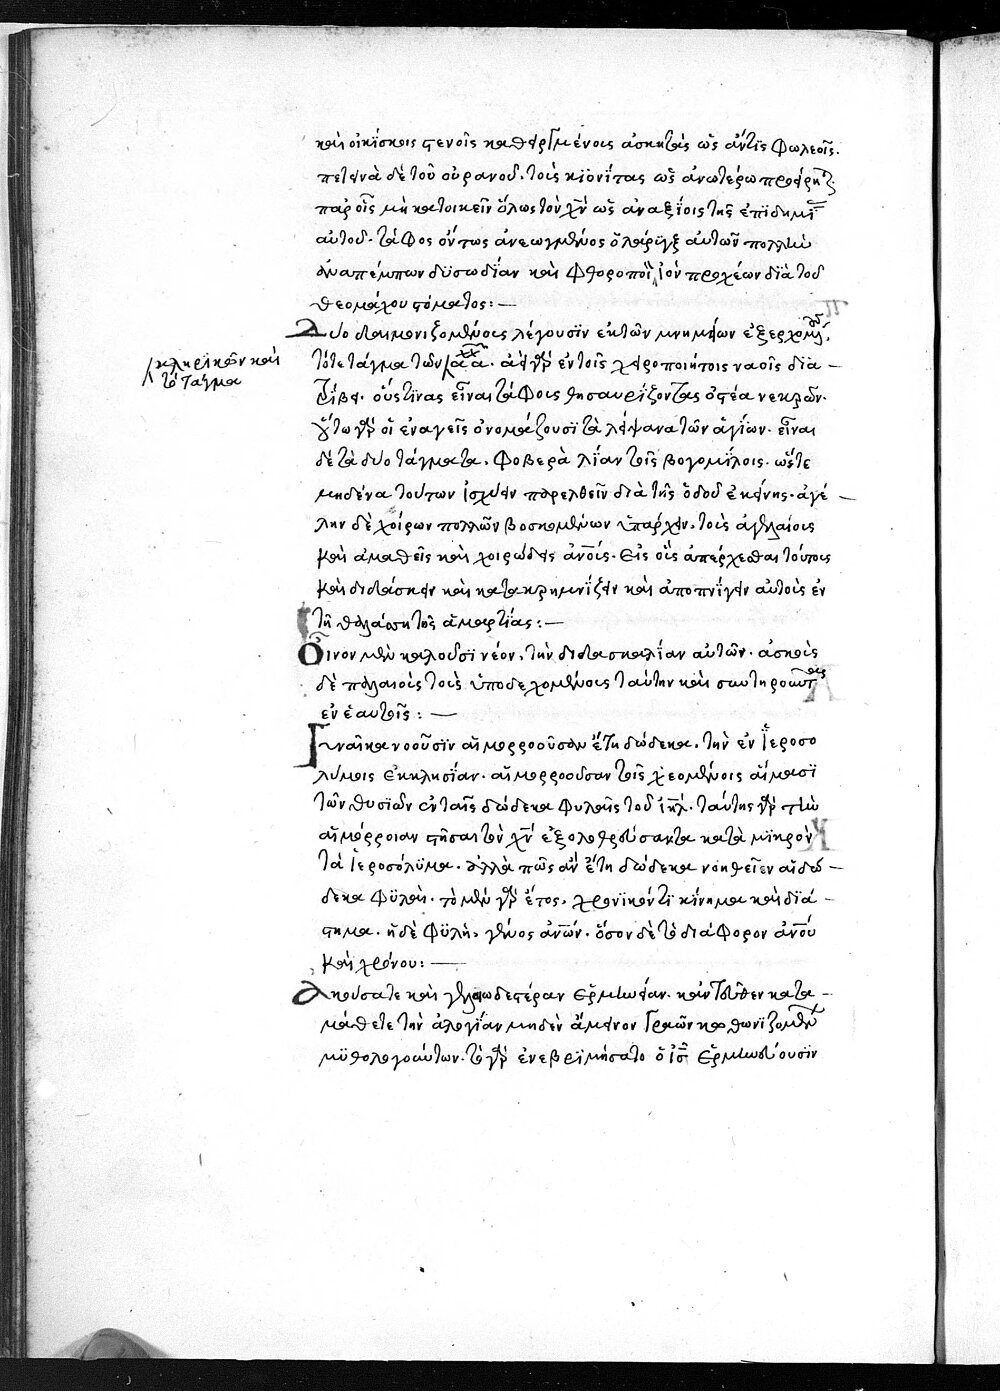 καὶ οἰκίσκοις στενοῖς καθειργμένους ἀσκητὰς ὡς ἄντις φωλεοῖς.
πετεινὰ δὲ τοῦ οὐρανοῦ. τοὺς κιονίτας ὡς ἀνωτέρω προείρηται.
παρ οἷς μὴ κατοικεῖν ὅλως τὸν χν ὡς ἀναξίοις τῆς ἐπιδημίας
αὐτοῦ. τάφος ὄντως ἀνεωγμένος ὁ λάρυγξ αὐτῶν πολλὴν
ἀναπέμπων δυσωδίαν καὶ φθοροποιὸν ἰὸν προχέων διὰ τοῦ
θεομάχου στόματος: —
Δύο δαιμονιζομένους λέγουσιν ἐκ τῶν μνημείων ἐξερχομένους.
τό τε τάγμα τῶν α α. ἀεὶ γὰρ ἐν τοῖς χειροποιήτοις ναοῖς δια-
τρίβει. οὕς τινας εἶναι τάφους θησαυρίζοντας ὀστέα νεκρῶν.
οὕτω γὰρ οἱ ἐναγεῖς ὀνομάζουσι τὰ λείψανα τῶν ἁγίων. εἶναι
δὲ τὰ δύο τάγματα. φοβερὰ λίαν τοῖς βογομίλοις. ὥστε
μηδένα τούτων ἰσχύειν παρελθεῖν διὰ τῆς ὁδοῦ ἐκείνης. ἀγέ-
λην δὲ χοίρων πολλῶν βοσκομένων ὑπάρχειν. τοὺς ἀγελαίους
καὶ ἀμαθεῖς καὶ χοιρώδεις ἀνους. εἰς οὓς ἀπέρχεσθαι τούτους
καὶ διδάσκειν καὶ κατακρημνίζειν καὶ ἀποπνίγειν αὐτοὺς ἐν
τῇ θαλάσσῃ τῆς ἁμαρτίας: —
Οἶνον μὲν καλοῦσι νέον. τὴν διδασκαλίαν αὐτῶν. ἀσκοὺς
δὲ παλαιοὺς τοὺς ὑποδεχομένους ταύτην καὶ συντηροῦντας
ἐν ἑαυτοῖς: —
Γυναῖκα νοοῦσιν αἱμορροοῦσαν ἔτη δώδεκα. τὴν ἐν ἱεροσο
λύμοις ἐκκλησίαν. αἱμορροοῦσαν τοῖς χεομένοις αἵμασι
τῶν θυσιῶν ἐν ταῖς δώδεκα φυλαῖς τοῦ ιηλ. ταύτης γὰρ τὴν
αἱμόρροιαν στῆσαι τὸν χν ἐξολοθρεύσαντα κατὰ μικρὸν
τὰ ἱεροσόλυμα. ἀλλὰ πῶς ἂν ἔτη δώδεκα νοηθεῖεν αἱ δώ-
δεκα φυλαί. τὸ μὲν γὰρ ἔτος. χρονικόν τι κίνημα καὶ διά-
στημα. ἡ δὲ φυλὴ. γένος ἀνων. ὅσον δὲ τὸ διάφορον ἀνου
καὶ χρόνου: —
Ἀκούσατε καὶ γελοιωδεστέραν ἑρμηνείαν. κἀντεῦθεν κατα-
μάθετε τὴν ἀλογίαν μηδὲν ἄμεινον γραῶν κωθωνιζομένων
μυθολογούντων. τὸ γὰρ ἐνεβριμήσατο ὁ ις ἑρμηνεύουσιν
κληρικῶν καὶ
τὸ τάγμα